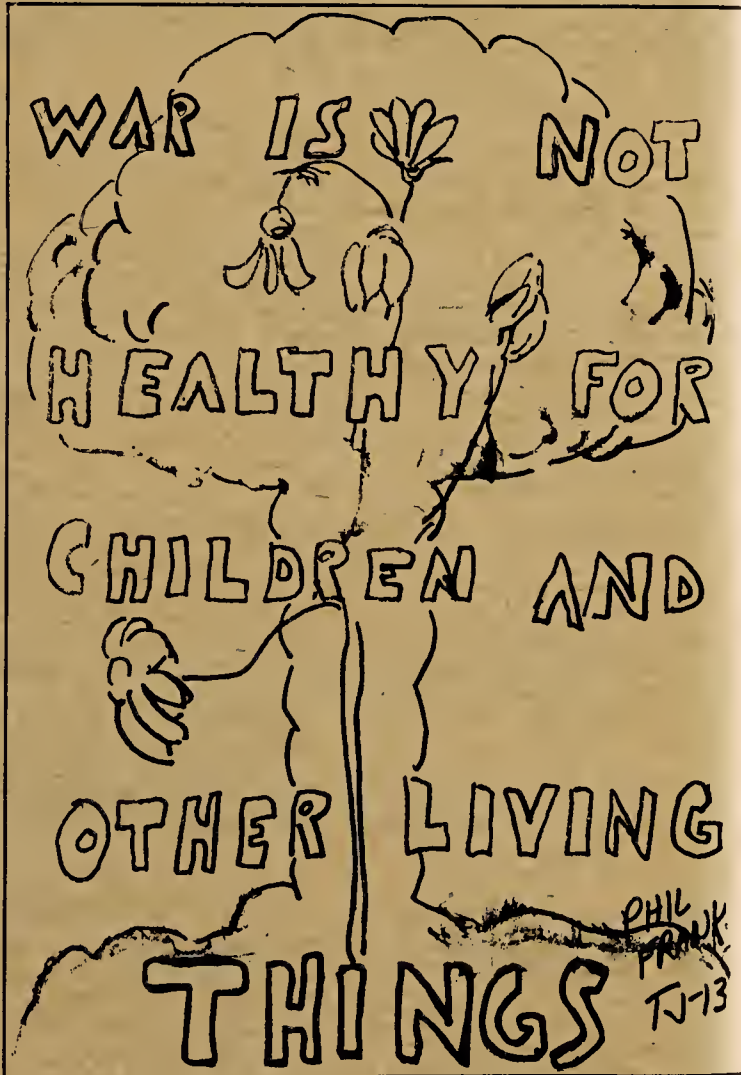 WAR IS NOT
HEALTHY FOR
CHILDREN AND
OTHER LIVING
THINGS
PHIL
FRANK
TJ-13